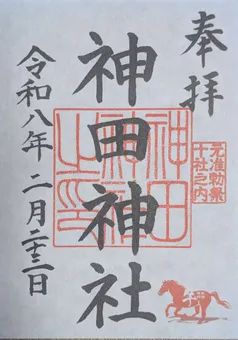 奉拝
神田神社
令和八年二月二十三日
元准勅祭
十社之内
神田
神社
之印